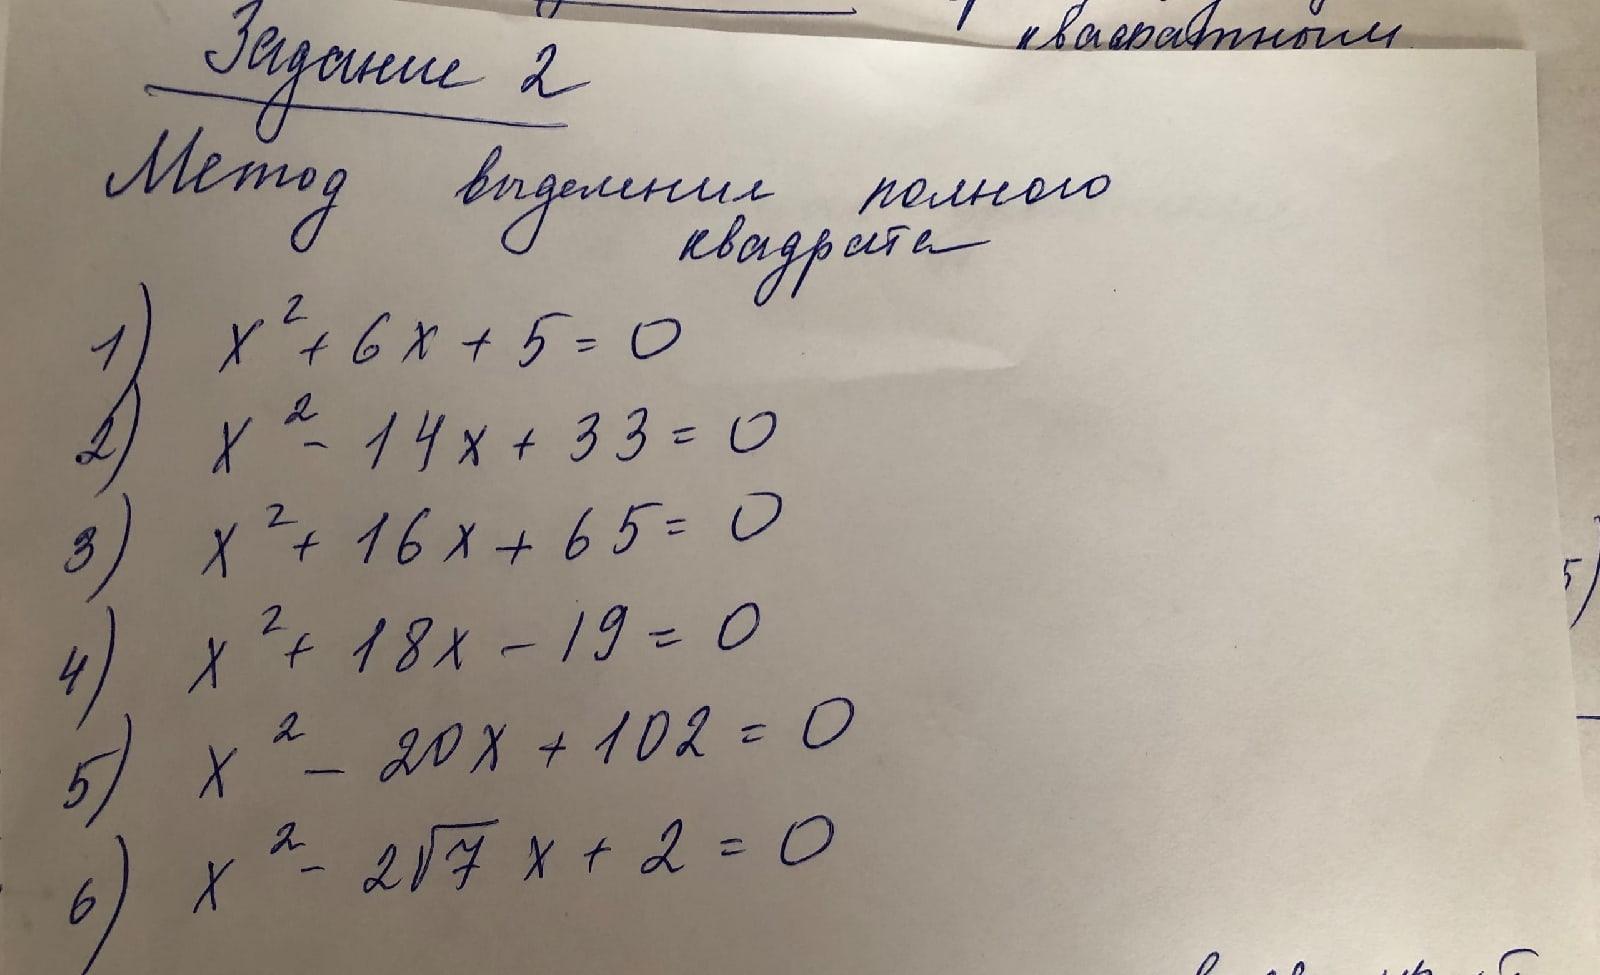 квадратным
Задание 2
Метод выделения полного
квадрата
1) x² + 6x + 5 = 0
2) x² - 14x + 33 = 0
3) x² + 16x + 65 = 0
4) x² + 18x - 19 = 0
5) x² - 20x + 102 = 0
6) x² - 2√7 x + 2 = 0
5)